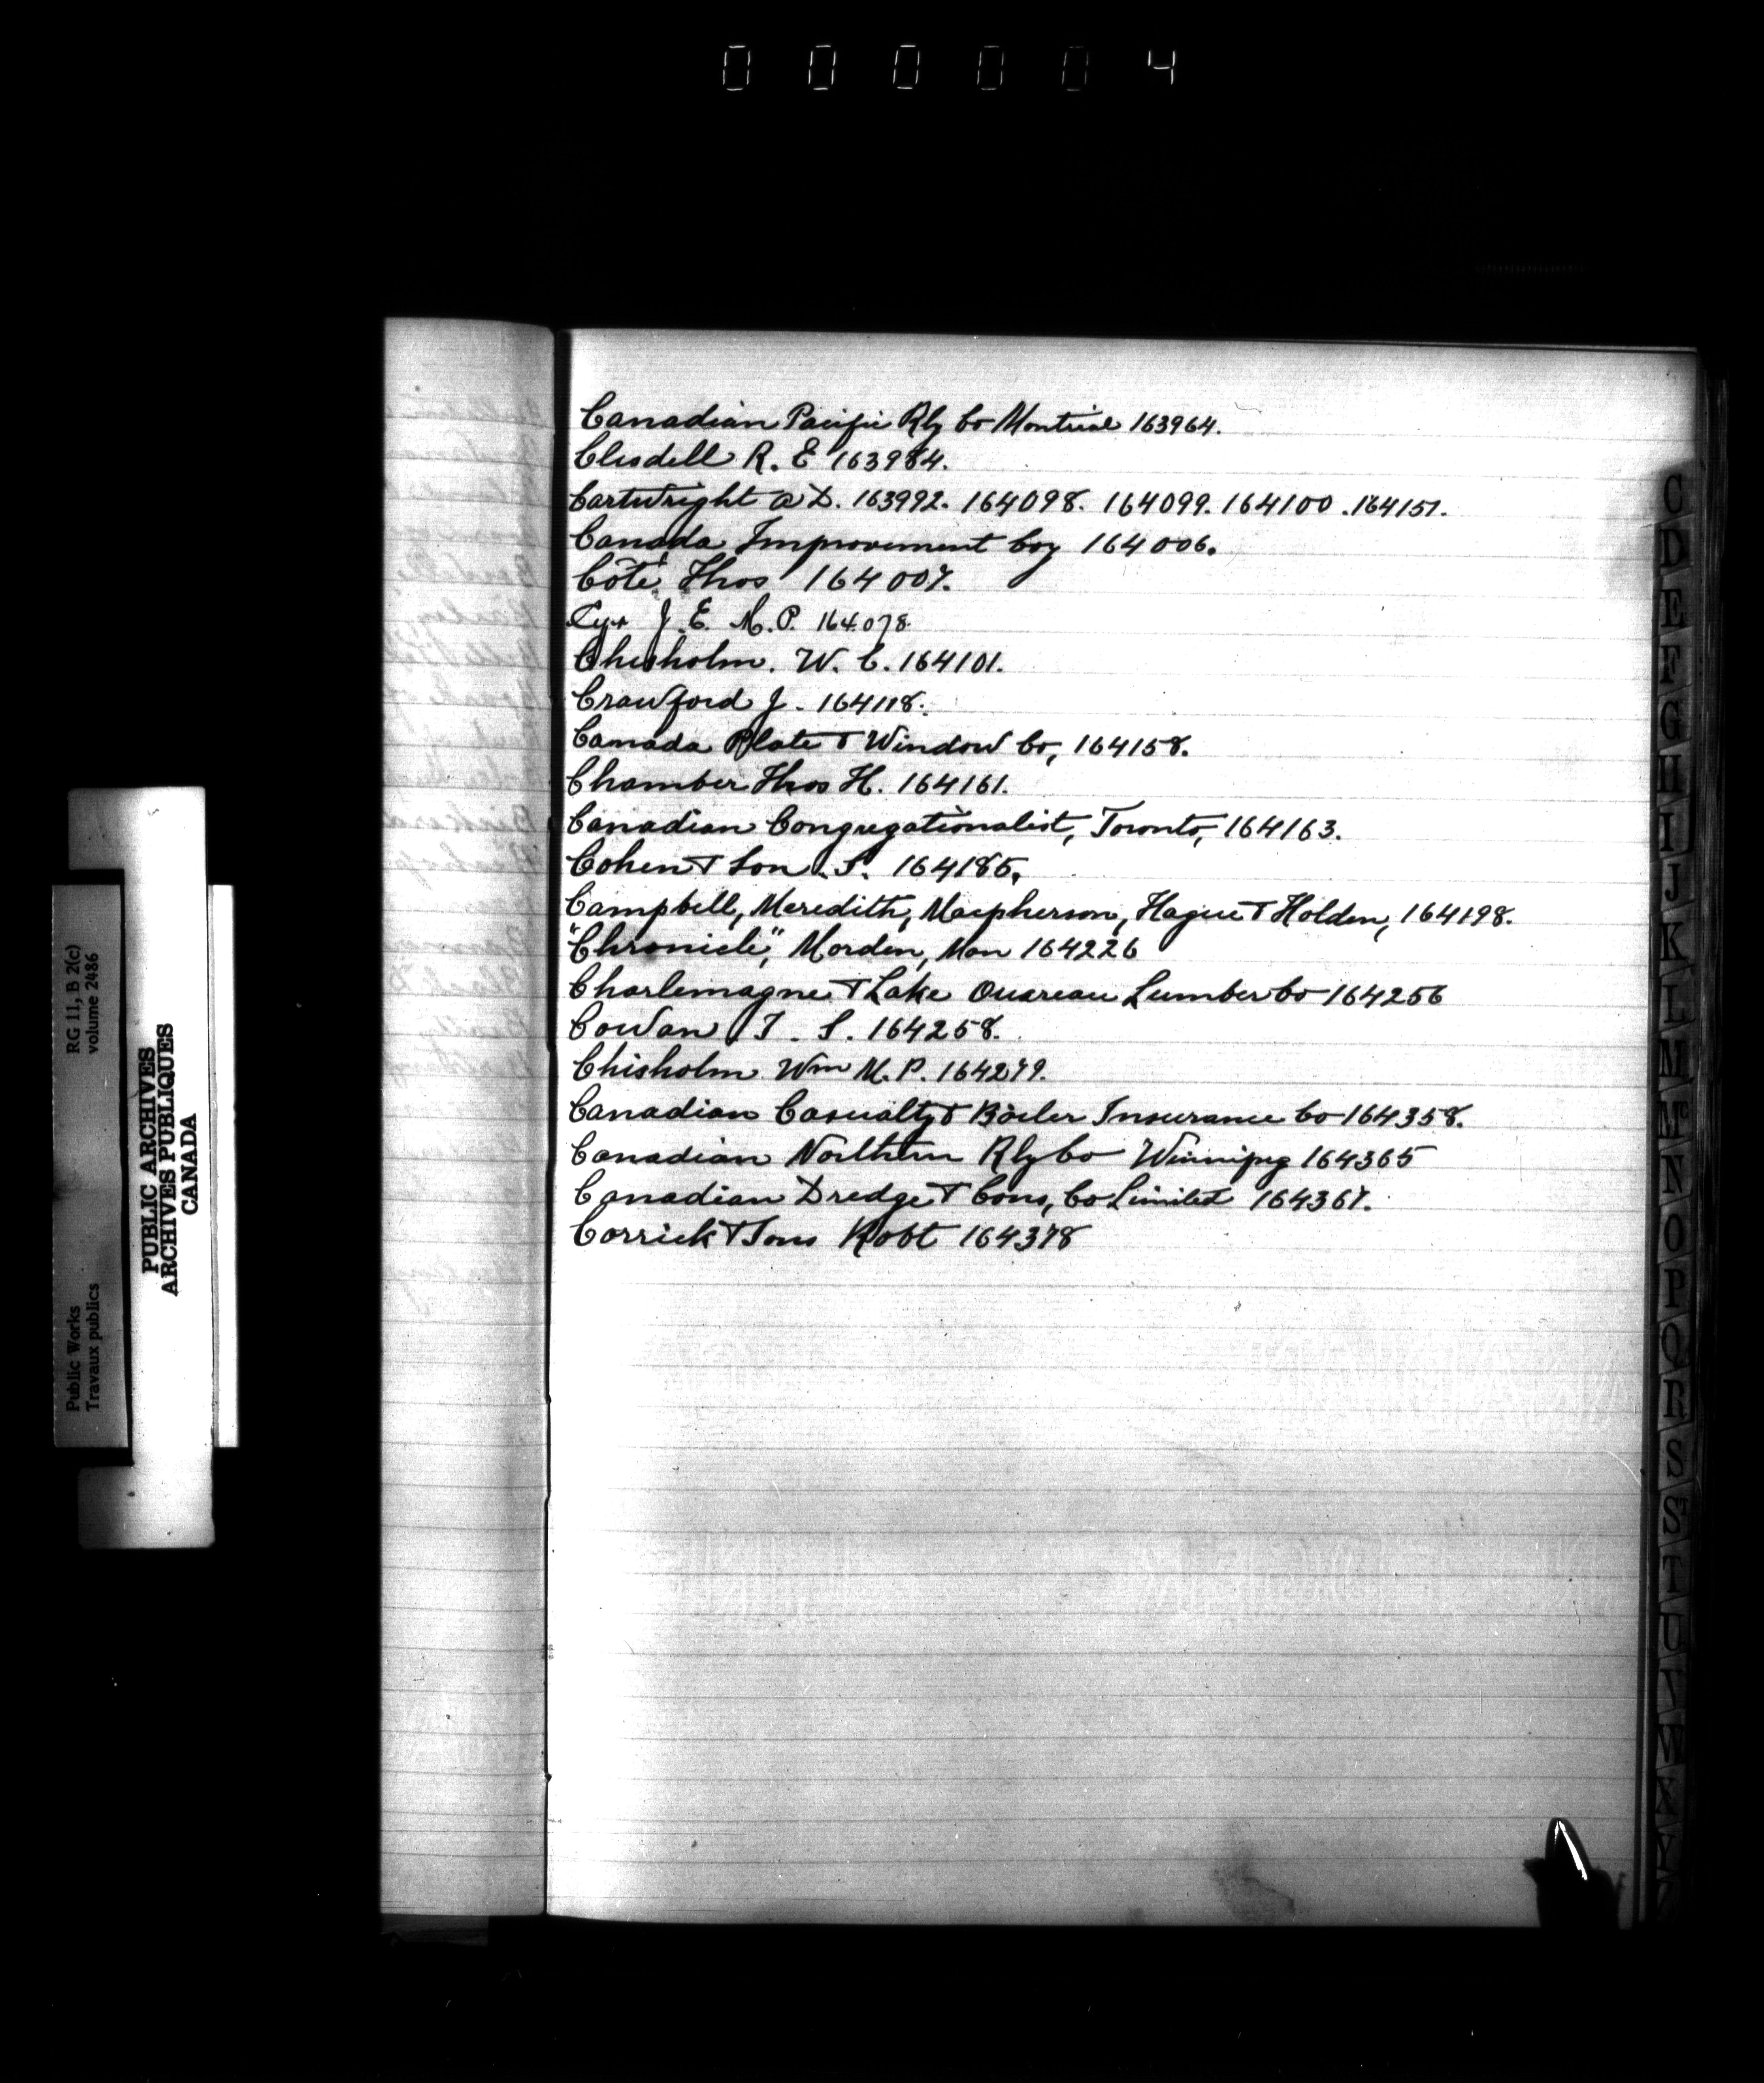 000004
Canadian Pacific Rly Co Montreal 163964.
Clisdell R. E 163984.
Cartwright A D. 163992. 164098. 164099. 164100. 164151.
Canada Improvement Coy 164006.
Côté, Thos 164007.
Cyr J. E. M.P. 164078
Chisholm. W. C. 164101.
Crawford J. 164118.
Canada Plate & Window Co, 164158.
Chamber Thos H. 164161.
Canadian Congregationalist, Toronto, 164163.
Cohen & Son. S. 164185.
Campbell, Meredith, Macpherson, Hague & Holden, 164198.
"Chronicle", Morden, Man 164226
Charlemagne & Lake Ouareau Lumber Co 164256
Cowan T. S. 164258.
Chisholm Wm M.P. 164279.
Canadian Casualty & Boiler Insurance Co 164358.
Canadian Northern Rly Co Winnipeg 164365
Canadian Dredge & Cons, Co Limited 164367.
Corrick & Sons Robt 164378
RG 11, B 2(c)
volume 2486
Public Works
Travaux publics
PUBLIC ARCHIVES
ARCHIVES PUBLIQUES
CANADA
C
D
E
F
G
H
I
J
K
L
M
Mc
N
O
P
Q
R
S
S
T
U